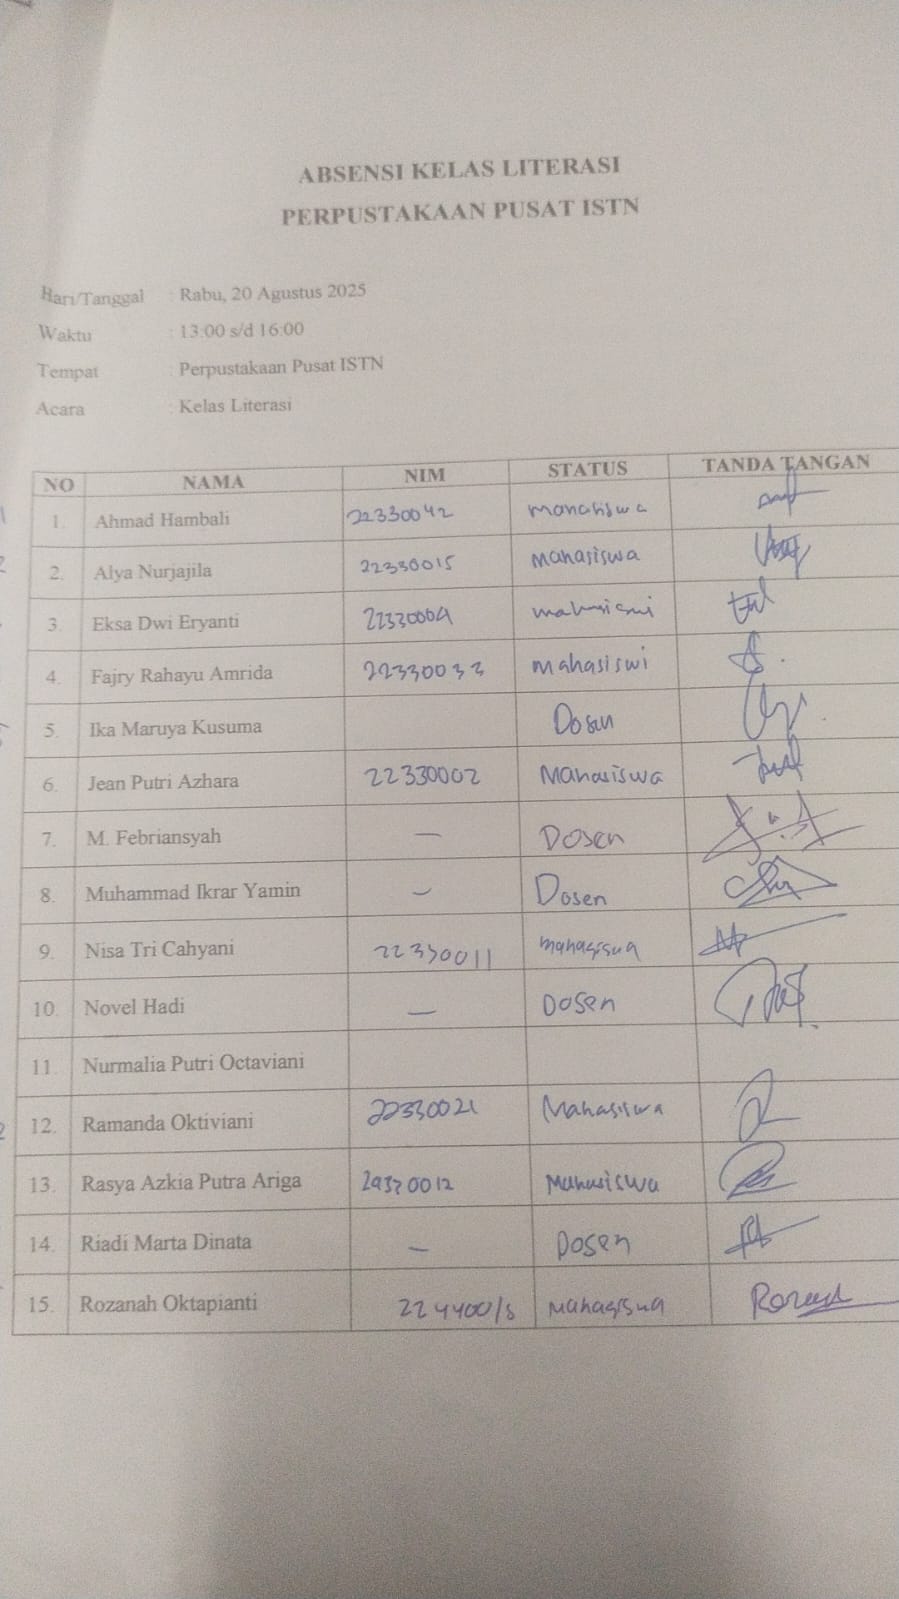 ABSENSI KELAS LITERASI
PERPUSTAKAAN PUSAT ISTN
Hari/Tanggal : Rabu, 20 Agustus 2025
Waktu : 13:00 s/d 16:00
Tempat : Perpustakaan Pusat ISTN
Acara : Kelas Literasi
NO NAMA NIM STATUS TANDA TANGAN
1. Ahmad Hambali 22330042 mahasiswa
2. Alya Nurjajila 22330015 mahasiswa
3. Eksa Dwi Eryanti 22330004 mahasiswi
4. Fajry Rahayu Amrida 22330033 mahasiswi
5. Ika Maruya Kusuma Dosen
6. Jean Putri Azhara 22330002 Mahasiswa
7. M. Febriansyah — Dosen
8. Muhammad Ikrar Yamin — Dosen
9. Nisa Tri Cahyani 22330011 mahasiswa
10. Novel Hadi — Dosen
11. Nurmalia Putri Octaviani
12. Ramanda Oktiviani 22330021 Mahasiswa
13. Rasya Azkia Putra Ariga Mahasiswa
14. Riadi Marta Dinata — Dosen
15. Rozanah Oktapianti Mahasiswa